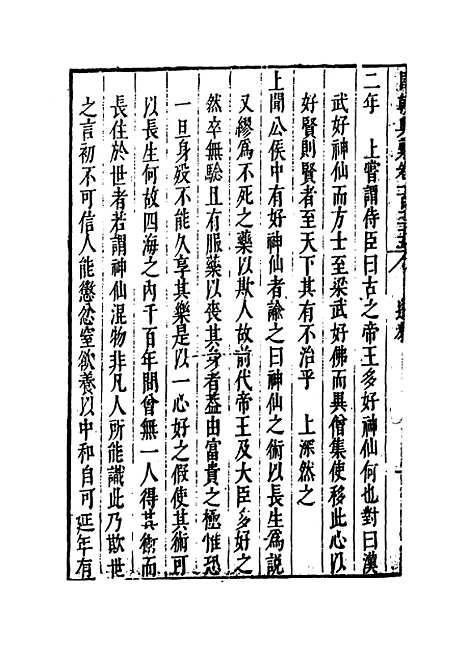 國朝典彙卷
二年　上嘗謂侍臣曰古之帝王多好神仙何也對曰漢
武好神仙而方士至梁武好佛而異僧集使移此心以
好賢則賢者至天下其有不治乎　上深然之
上聞公侯中有好神仙者諭之曰神仙之術以長生為說
又繆為不死之藥以欺人故前代帝王及大臣多好之
然卒無驗且有服藥以喪其身者蓋由富貴之極惟恐
一旦身歿不能久享其樂是以一心好之假使其術可
以長生何故四海之內千百年間曾無一人得其術而
長住於世者若謂神仙混物非凡人所能識此乃欺世
之言初不可信人能懲忿窒欲養以中和自可延年有